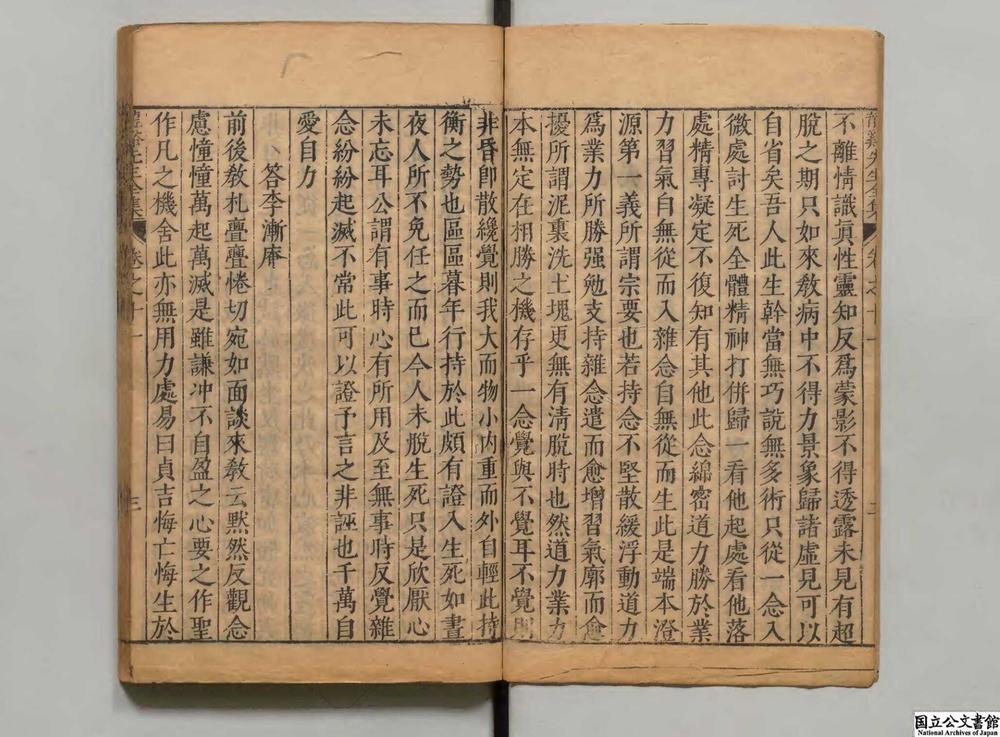 不離情識眞性靈知反爲蒙影不得透露未見有超
脫之期只如來敎病中不得力景象歸諸虛見可以
自省矣吾人此生幹當無巧說無多術只從一念入
微處討生死全體精神打併歸一看他起處看他落
處精專凝定不復知有其他此念綿密道力勝於業
力習氣自無從而入雜念自無從而生此是端本澄
源第一義所謂宗要也若持念不堅散緩浮動道力
爲業力所勝强勉支持雜念遣而愈增習氣廓而愈
擾所謂泥裏洗土塊更無有淸脫時也然道力業力
本無定在相勝之機存乎一念覺與不覺耳不覺則
非昏卽散纔覺則我大而物小內重而外自輕此持
衡之勢也區區暮年行持於此頗有證入生死如晝
夜人所不免任之而已今人未脫生死只是欣厭心
未忘耳公謂有事時心有所用及至無事時反覺雜
念紛紛起滅不常此可以證予言之非誣也千萬自
愛自力
答李漸庵
前後敎札亹亹惓切宛如面談來敎云默然反觀念
慮憧憧萬起萬滅是雖謙冲不自盈之心要之作聖
作凡之機舍此亦無用力處易曰貞吉悔亡悔生於
龍谿先生全集 卷之十一 三
国立公文書館
National Archives of Japan